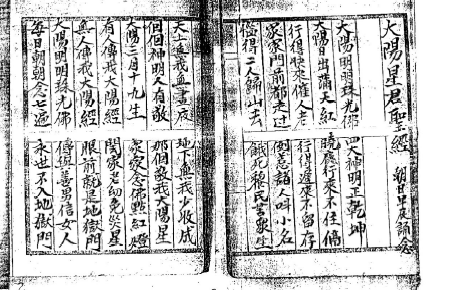 大陽星君聖經
大陽明明珠光佛 四大神明正乾坤
大陽日出蒲天紅 曉夜行來不住偏
行得快來催人老 行得遲來不留存
家家門前都走过 倒惹諸人叫小名
惱得二人歸山去 餓死黎民苦眾生
天上無我無晝夜 地下無我少收成
個個神明人有敬 那個敬我大陽星
大陽三月十九生 家家念佛點紅燈
有人傳我大陽經 閤家老幼免災星
無人傳我大陽經 眼前就是地獄門
大陽明明珠光佛 傳與善男信女人
每日朝朝念七遍 永世不入地獄門